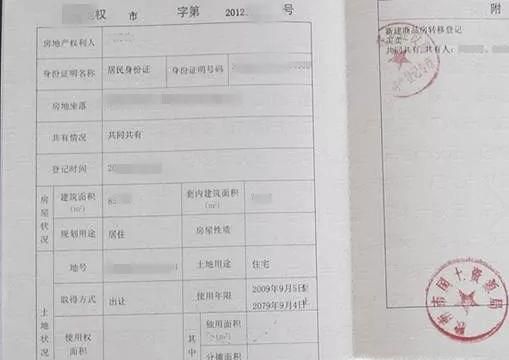 权 市 字第 2012 号
房地产权利人
身份证明名称 居民身份证 身份证明号码
房地坐落
共有情况 共同共有
登记时间 20
房屋状况
建筑面积(m²) 8 套内建筑面积(m²)
规划用途 居住 房屋性质
土地状况
地号 土地用途 住宅
取得方式 出让 使用年限 2009年9月5日至2079年9月4日
使用权面积 其中 独用面积
分摊面积
附
新建商品房转移登记
买卖
共同共有,共有人:
市国土资源局